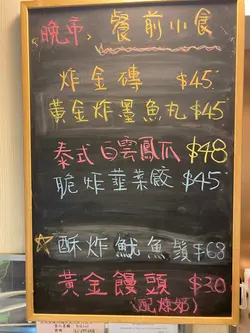 晚市、餐前小食
炸金磚 $45
黃金炸墨魚丸 $45
泰式白雲鳳爪 $48
脆炸韮菜餃 $45
☆酥炸魷魚鬚 $68
黃金饅頭 $30
(配煉奶)